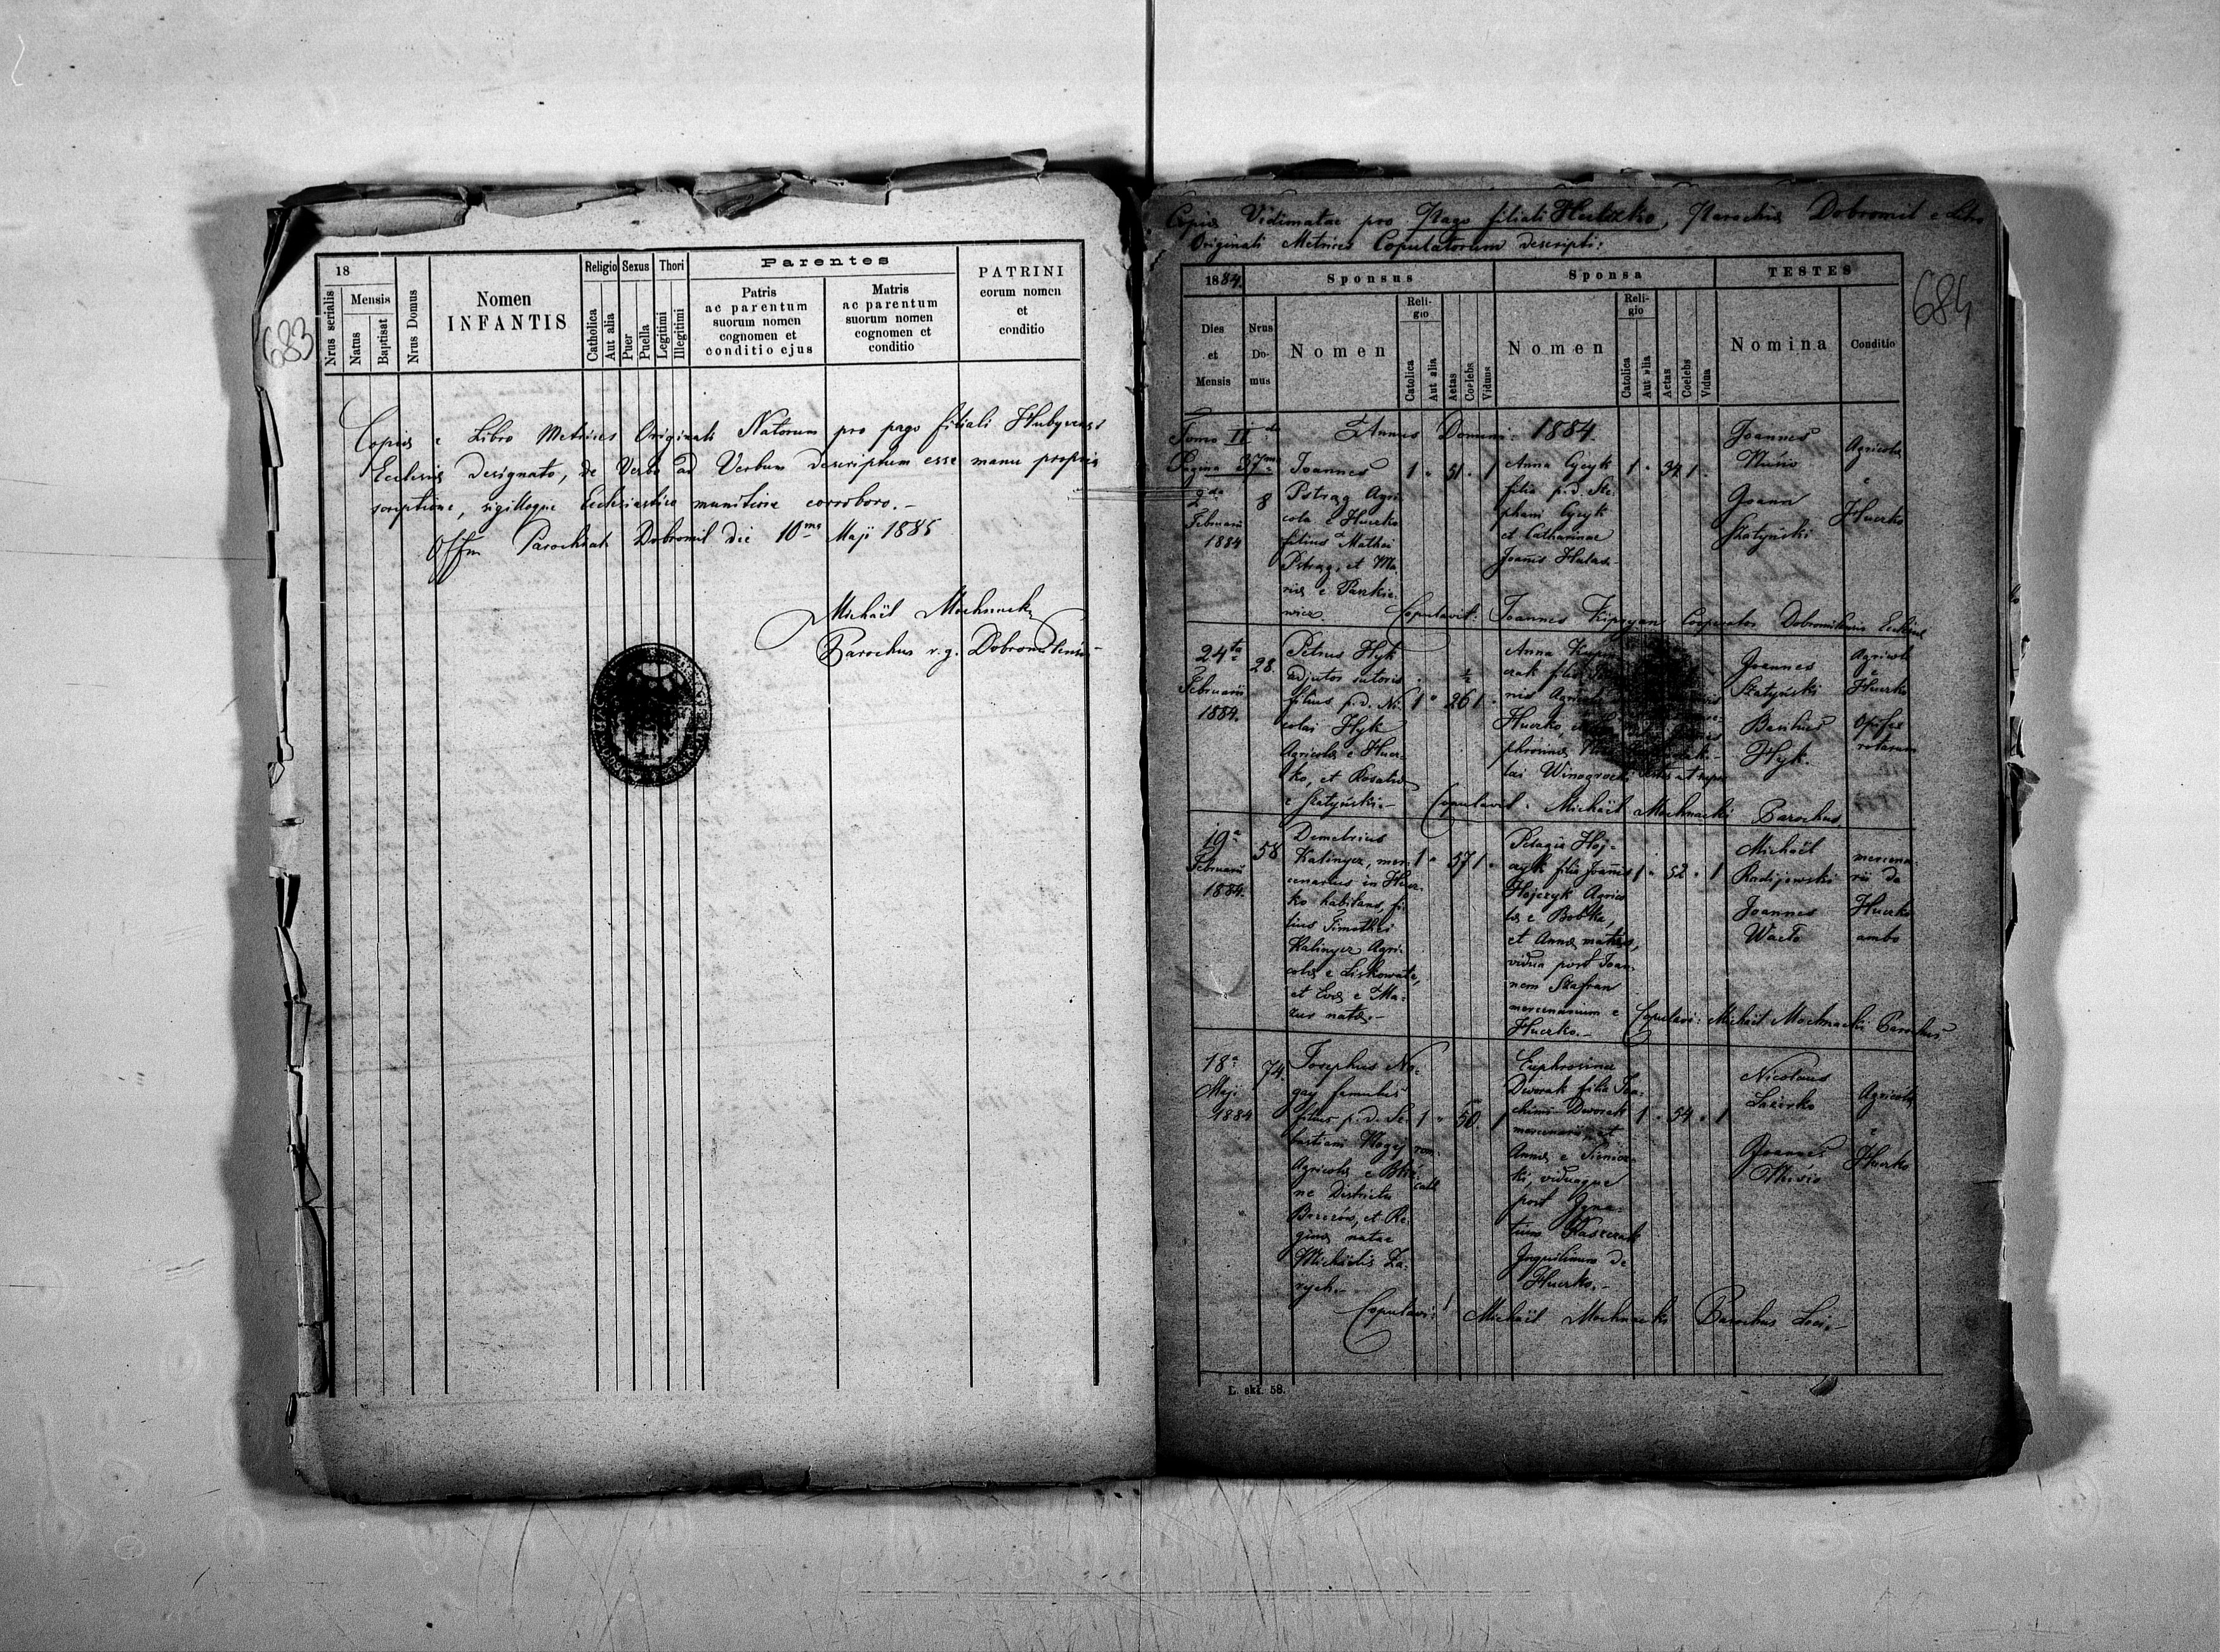 683
18
Nrus serialis
Mensis
Natus
Baptisat
Nrus Domus
Nomen
INFANTIS
Religio
Catholica
Aut alia
Sexus
Puer
Puella
Thori
Legitimi
Illegitimi
Parentes
Patris
ac parentum
suorum nomen
cognomen et
conditio ejus
Matris
ac parentum
suorum nomen
cognomen et
conditio
PATRINI
eorum nomen
et
conditio
Copia e Libro Metrices Originali Natorum pro pago filiali
Ecclesia designato, de Verbo ad Verbum descriptum esse manu propria
scriptione, sigilloque Ecclesiastico munitione corroboro.-
Offm Parochiale Dobromil die 10ma Maji 1885
Michaël Mochnacki
Parochus r.g. Dobromilensis
Copia Vidimatae pro Pago filiali Huczko, Parochia Dobromil e Libro
Originali Metrices Copulatorum descripti:
684
1884.
Dies
et
Mensis
Nrus
Do-
mus
Sponsus
Nomen
Reli-
gio
Catolica
Aut alia
Aetas
Coelebs
Viduus
Sponsa
Nomen
Reli-
gio
Catolica
Aut alia
Aetas
Coelebs
Vidua
TESTES
Nomina
Conditio
Tomo II
Pagina 37
Annus Domini 1884.
2da
Februarii
1884
8
Joannes
Pstrąg Agri-
cola e Huczko
filius Mathei
Pstrąg, et Ma-
riae e Pankie-
wicz
1 " 51 " 1
Anna Gżyk
filia p.d. Ste-
phani Gżyk
et Catharinae
Joannis Hulas.
1 " 34 1 "
Joannes
Joann
Szatyński
Agricolae
e
Huczko
Copulavit: Joannes Kipryan Cooperator Dobromilensis Ecclesiae
24ta
Februarii
1884.
28.
Petrus Hyk
adjutor sutoris
filius p.d. Ni-
colai Hyk
Agricola e Hucz-
ko, et Rosalia
e Szatyński.-
1 " 26 1 "
Anna
filia
Huczko,
Winogrocki
Joannes
Szatyński
Basilius
Hyk.
Agricola
e
Huczko
Opifex
rotarum
Copulavit: Michaël Mochnacki Parochus.
19a
Februarii
1884.
58
Demetrius
Kalinycz, mer-
cenarius in Hucz-
ko habitans, fi-
lius Timothei
Kalinycz Agri-
cola e Liskowate,
et Eva e Ma-
zur nata.-
1 " 57 1 "
Pelagia Hoj-
czyk filia Joannis
Hojczyk Agrico-
la e Bobka,
et Anna matris,
vidua post Joan-
nem Szafran
mercenarium e
Huczko.-
1 " 52 " 1
Michaël
Radijewski
Joannes
Wacto
mercena-
rii de
Huczko
ambo
Copulavi: Michaël Mochnacki Parochus
18a
Maji
1884
74.
Josephus No-
gay famulus
filius p.d. Se-
bastiani Nogaj
Agricola e
ne Districtu
Brzozów, et Re-
gina natae
Michaëlis Za-
rych.-
1 " 50 " 1
rom.
cath
Euphrosina
Dworak filia Joa-
chimi Dworak
mercenarii, et
Anna e
ki, viduaque
post Igna-
tium Kaszczak
Inquilinum de
Huczko.-
1 " 54 " 1
Nicolaus
Joannes
Agricola
e
Huczko
Copulavi: Michaël Mochnacki Parochus Loci.-
L. skł. 58.